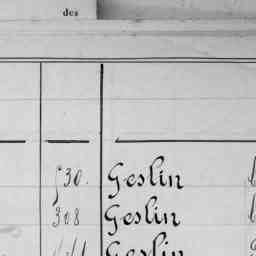 des
530. Geslin
308 Geslin
Geslin